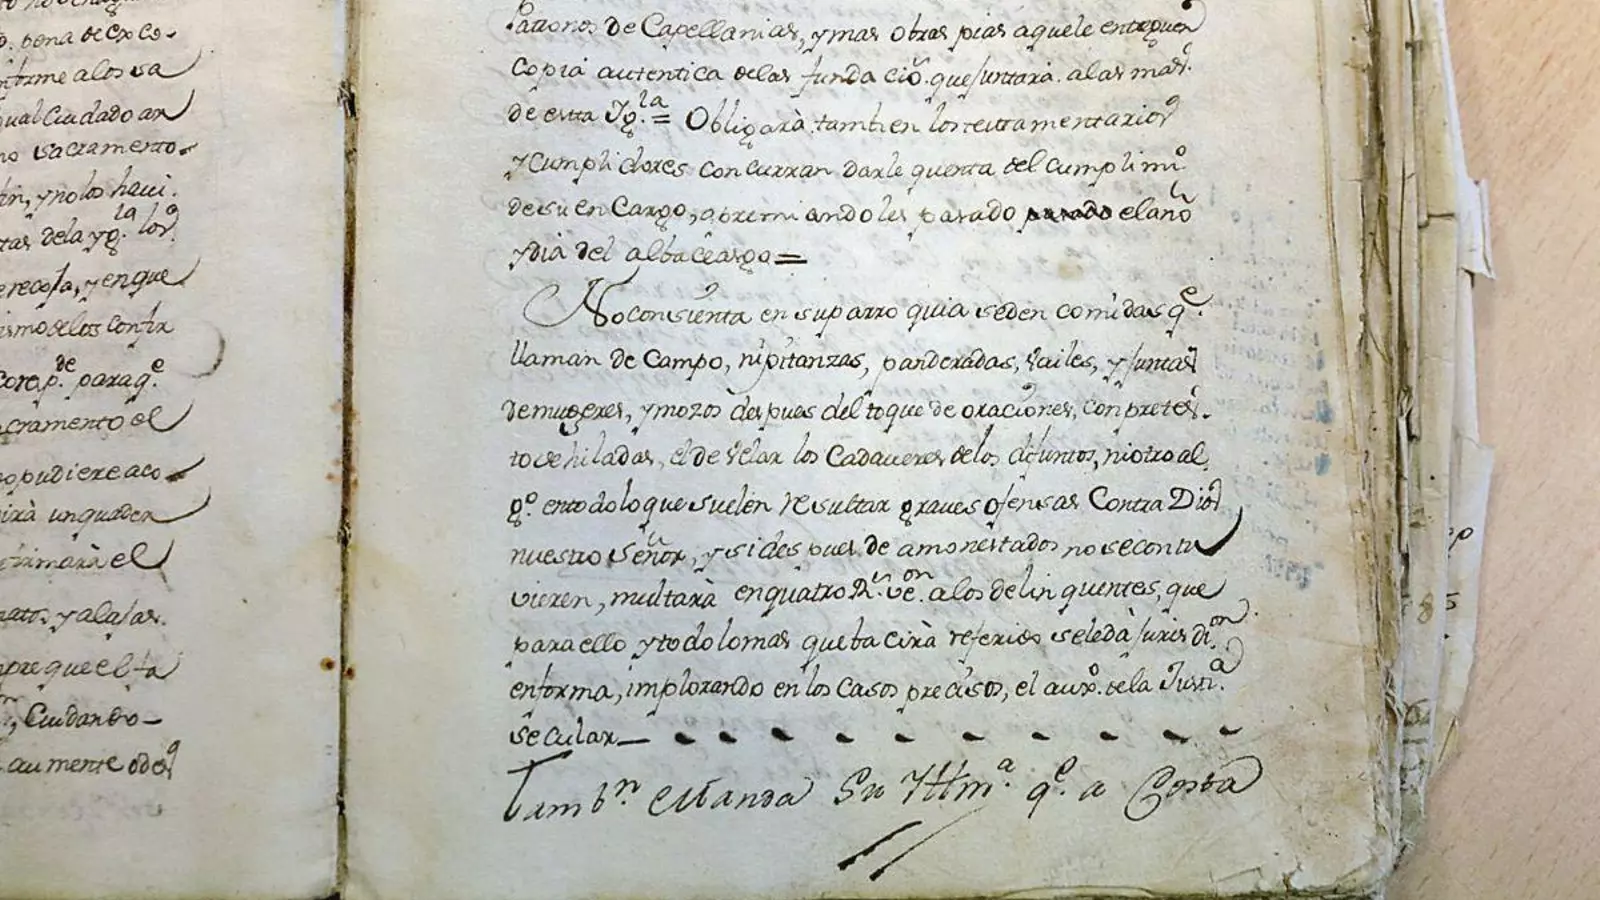 o. pena de exco-
informe a los sa
qual Cuidado an
no sacramento.
fin, y no los havi.
tas dela yg.la los
erecosa, y en que
ismo de los confir
core p.de para q.e
cramento el
no pudiere aco-
irà un quader
firmarà el
natos y alajas.
pre que el ta
, Cuidando-
aumente odos
Patronos de Capellanias, y mas obras pias aquele entreguen
copia autentica delas fundacio.s que juntarà alas mas.
de esta Yg.la = Obligarà tambien los testamentarios
y Cumplidores concurran darle quenta del cumplim.o
de su en Cargo, apremiandoles pasado pasado el año
y dia del albaceazgo =
No consienta en su parroquia se den comidas q.e
llaman de Campo, ni pitanzas, panderadas, vailes, y juntas
de mugeres, y mozos despues del toque de oraciones, con pretes.
to de hiladas, el de velar los Cadaveres de los difuntos, ni otro al
g.o en todo lo que suelen resultar graves ofensas Contra Dios
nuestro Señor, y si despues de amonestados no se contu
vieren, multarà en quatro R.s ve.on a los delinquentes, que
para ello y todo lo mas que ba cirà referido se le dà jurisdi.on
en forma, implorando en los casos precisos, el aux.o de la Justi.a
secular
Tamb.n Manda Su Yllm.a q.e a Costa